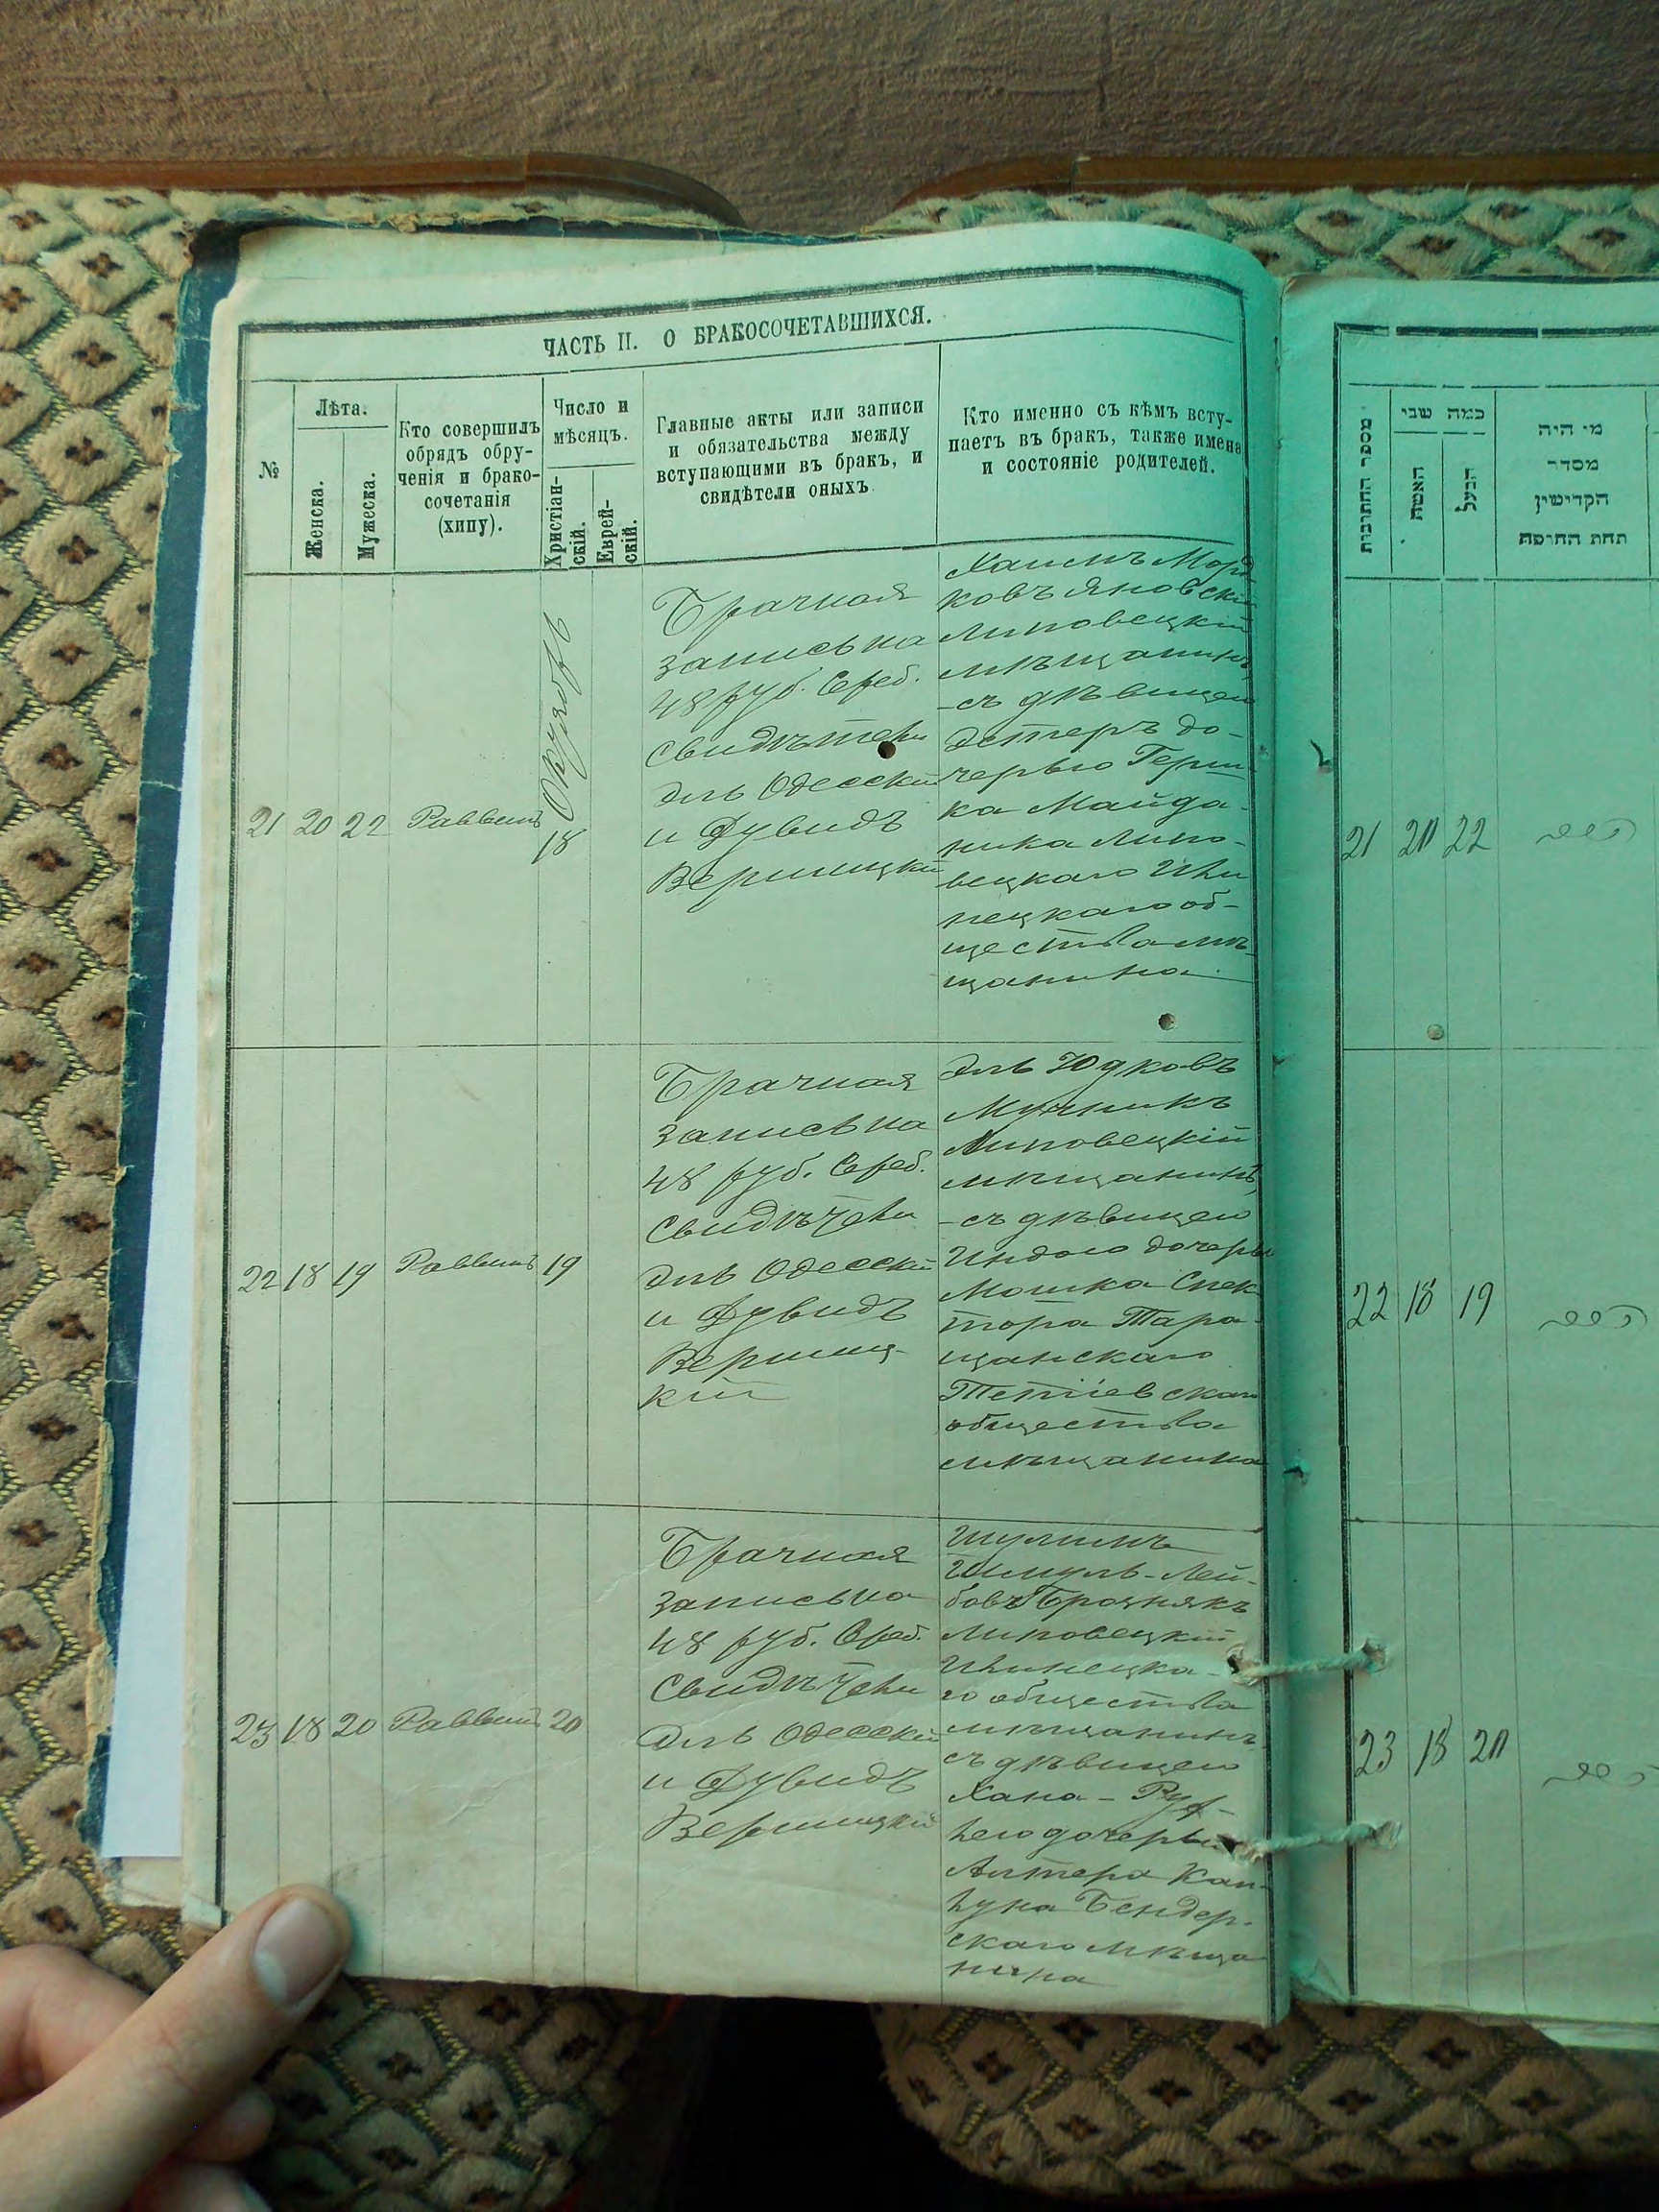 ЧАСТЬ II. О БРАКОСОЧЕТАВШИХСЯ.
№
Лѣта.
Женска.
Мужеска.
Кто совершилъ
обрядъ обру-
ченія и брако-
сочетанія
(хипу).
Число и
мѣсяцъ.
Христіан-
скій.
Еврей-
скій.
Главные акты или записи
и обязательства между
вступающими въ бракъ, и
свидѣтели оныхъ
Кто именно съ кѣмъ всту-
паетъ въ бракъ, также имена
и состояніе родителей.
21
20
22
Раввинъ
Октября
18
Брачная
запись на
48 руб. Сереб.
Свидѣтели
Эль Одесскій
и Дувидъ
Вершицкій
Хаимъ Морд
ковъ Яновскій
Липовецкій
мѣщанинъ,
-съ дѣвицею
Эстеръ до-
черью Герш-
ка Майда-
ника Липо-
вецкаго Ильи
нецкаго об-
щества мѣ-
щанина
22
18
19
Раввинъ
19
Брачная
запись на
48 руб. Сереб.
Свидѣтели
Эль Одесскій
и Дувидъ
Вершиц-
кій
Эль Юдковъ
Мучникъ
Липовецкій
мѣщанинъ,
-съ дѣвицею
Индою дочерью
Мошка Спек-
тора Тара-
щанскаго
Тетіевскаго
общества
мѣщанина
23
18
20
Раввинъ
20
Брачная
запись на
48 руб. Сереб.
Свидѣтели
Эль Одесскій
и Дувидъ
Вершицкій
Шулимъ
Шмуль-Лей-
бовъ
Липовецкій
Ильинецка-
го общества
мѣщанинъ
съ дѣвицею
Хана-
лею дочерью
Алтера Кап-
луна Бендер-
скаго мѣща
нина
מספר החתונות
כמה שני
האשה
הבעל
מי היה
מסדר
הקדישין
תחת החופה
21
20
22
22
18
19
23
18
20